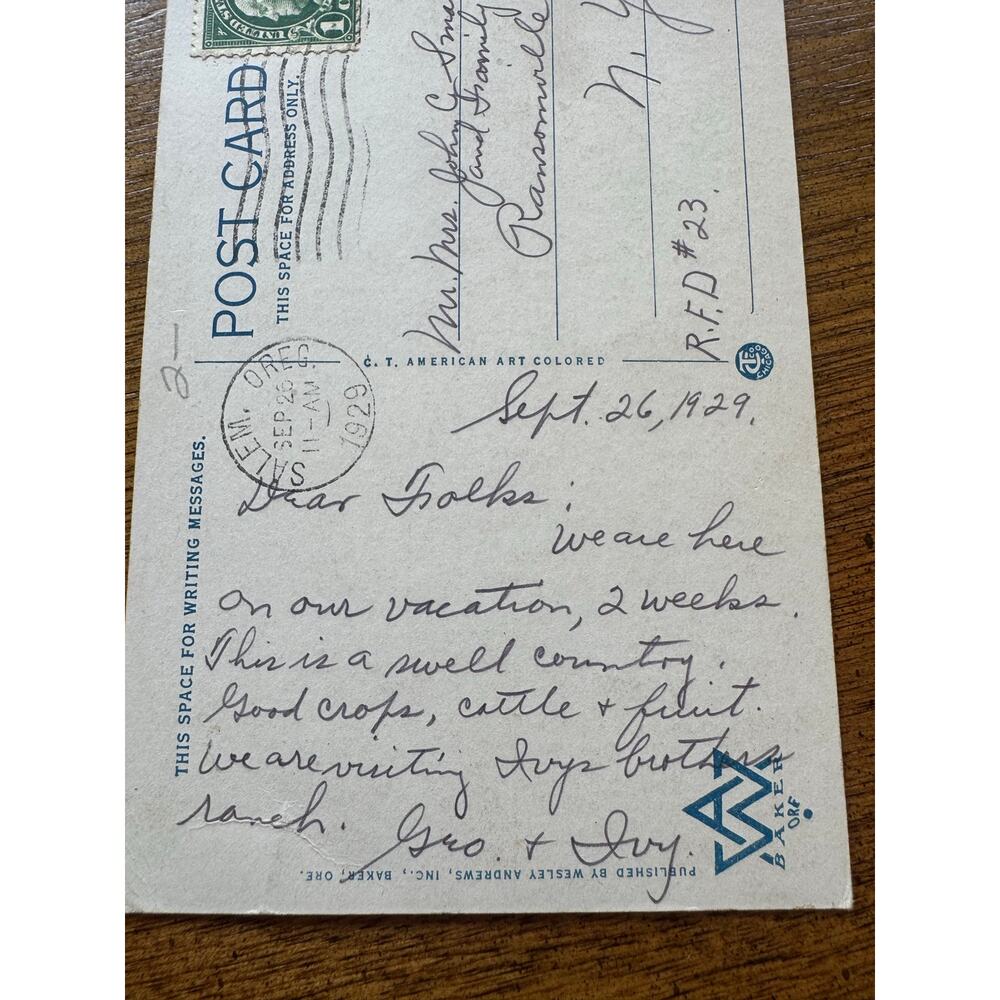 POST CARD
THIS SPACE FOR ADDRESS ONLY.
Mr. Mrs. John G
and Family
Ransomville
N. Y
R.F.D #23.
2—
SALEM, OREG.
SEP 26
11-AM
1929
C. T. AMERICAN ART COLORED
CHICAGO
THIS SPACE FOR WRITING MESSAGES.
Sept. 26, 1929.
Dear Folks;
We are here
on our vacation, 2 weeks.
This is a swell country.
Good crops, cattle + fruit.
We are visiting Ivys brothers
ranch.
Geo. + Ivy.
BAKER
ORE
PUBLISHED BY WESLEY ANDREWS, INC., BAKER, ORE.